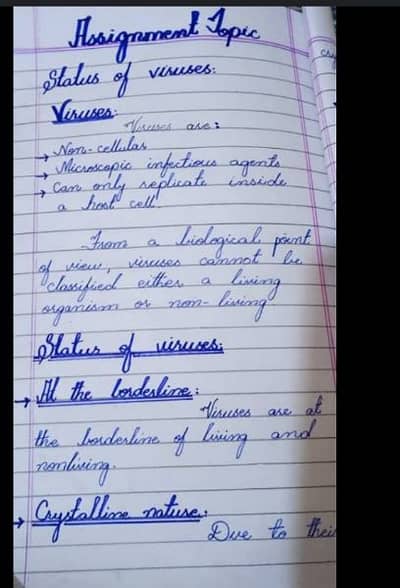 Assignment Topic
Status of viruses:
Viruses:
Viruses are:
→ Non-cellular
→ Microscopic infectious agents
→ Can only replicate inside
a host cell.
From a biological point
of view, viruses cannot be
"classified either a living
organism or non-living"
Status of viruses:
→ At the borderline:
Viruses are at
the borderline of living and
nonliving.
→ Crystalline nature:
Due to their